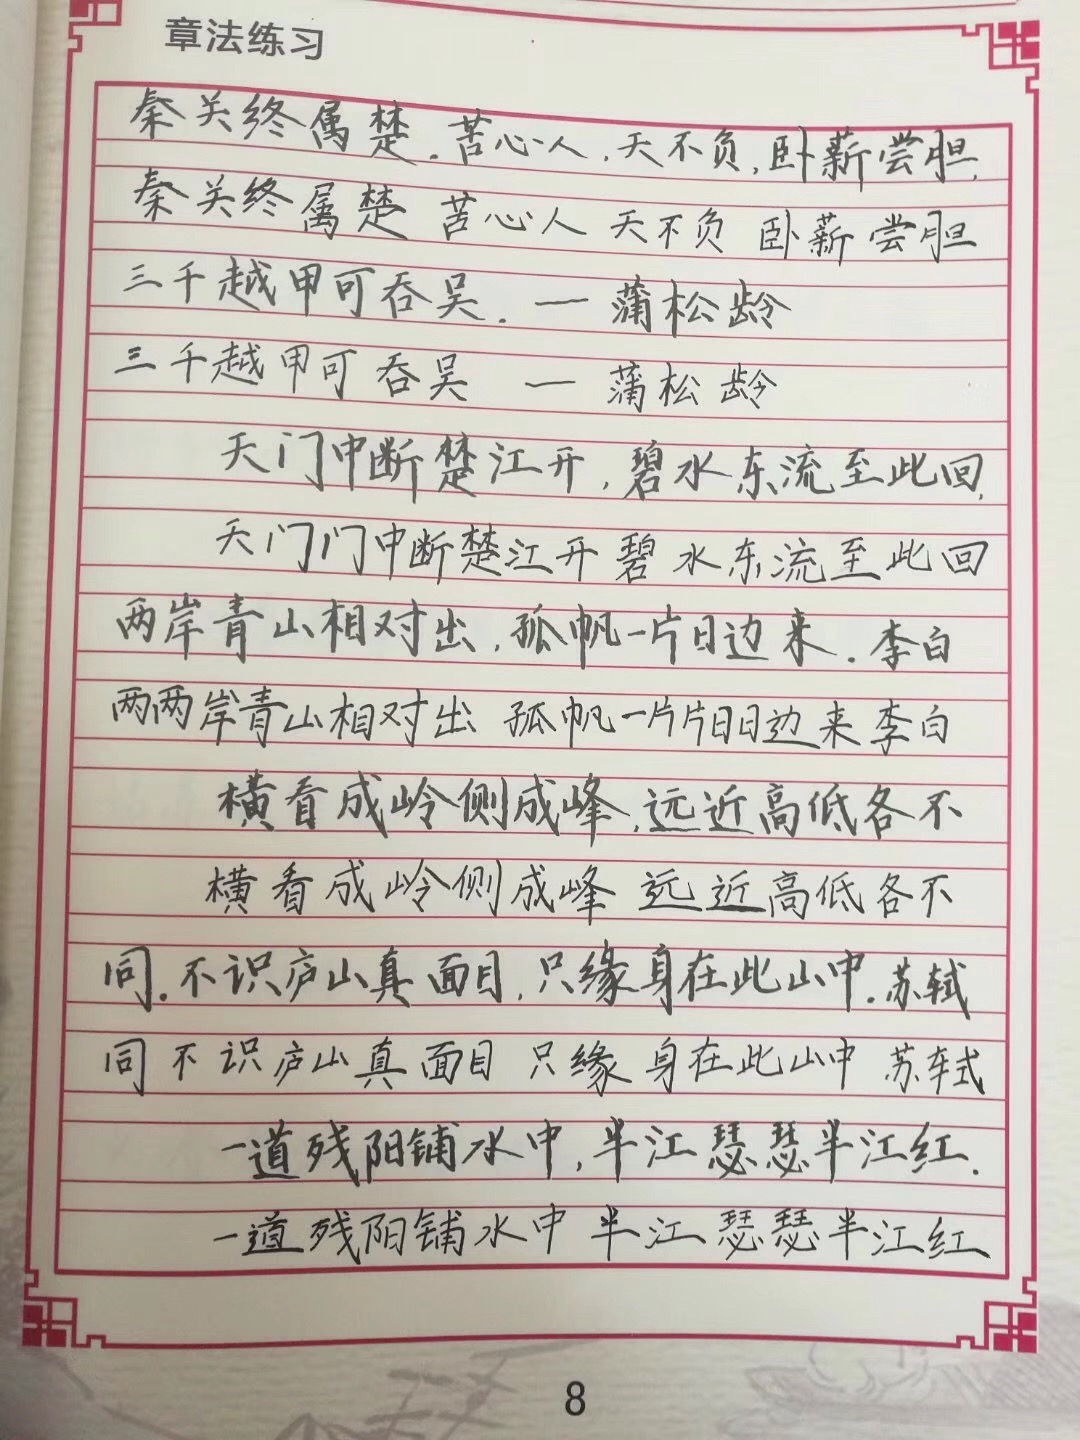 章法练习
秦关终属楚.苦心人,天不负,卧薪尝胆,
秦关终属楚 苦心人 天不负 卧薪尝胆
三千越甲可吞吴. — 蒲松龄
三千越甲可吞吴 — 蒲松龄
天门中断楚江开,碧水东流至此回,
天门门中断楚江开 碧水东流至此回
两岸青山相对出,孤帆一片日边来.李白
两两岸青山相对出 孤帆一片片日日边来李白
横看成岭侧成峰,远近高低各不
横看成岭侧成峰 远近高低各不
同.不识庐山真面目,只缘身在此山中.苏轼
同 不识庐山真面目 只缘身在此山中 苏轼
一道残阳铺水中,半江瑟瑟半江红.
一道残阳铺水中 半江瑟瑟半江红
8